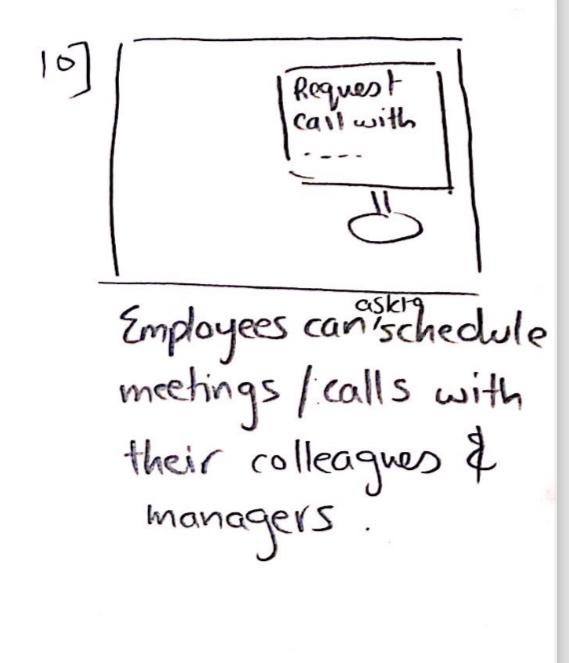 10]
Request
Call with
----
askrq
Employees can schedule
meetings / calls with
their colleagues &
managers.